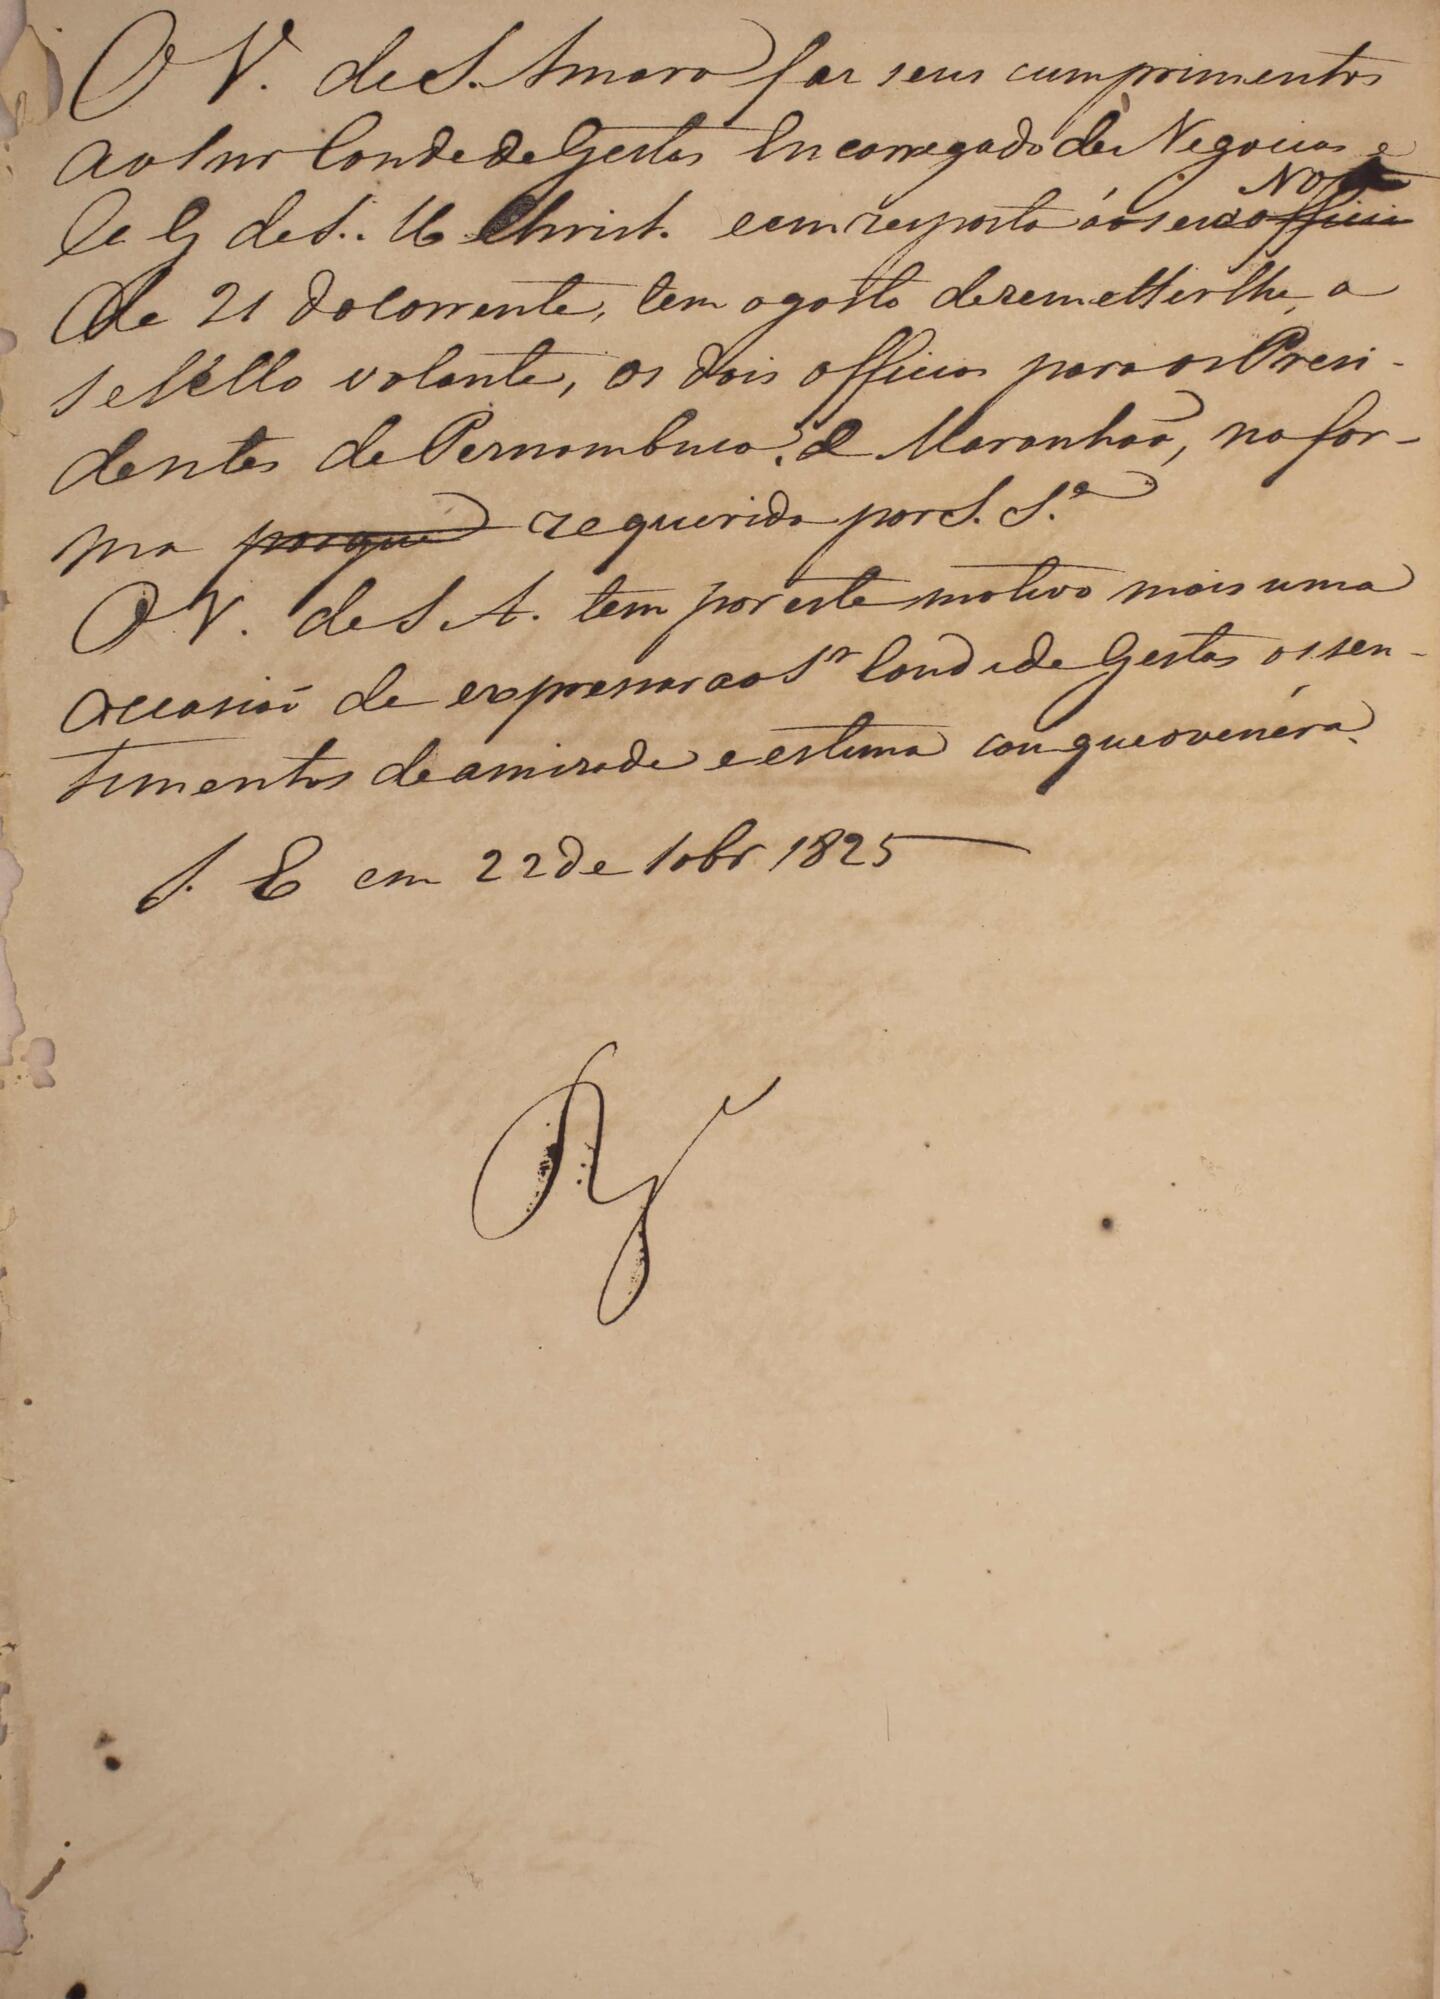 O V. de S. Amaro faz seus cumprimentos
ao Snr Conde de Gestas Encarregado de Negocios e
C. G de S. M Christ. e em resposta á o seu officio Nota
de 21 do corrente, tem o gosto de remetter lhe, a
sello volante, os dois officios para os Presi-
dentes de Pernambuco, e Maranhaõ, na for-
ma porque requerida por S. S.ª
O V. de S. A. tem por este motivo mais uma
occasiaõ de expressar ao Sr Conde de Gestas os sen-
timentos de amizade e estima com que o venéra.
S. E em 22 de 10br 1825